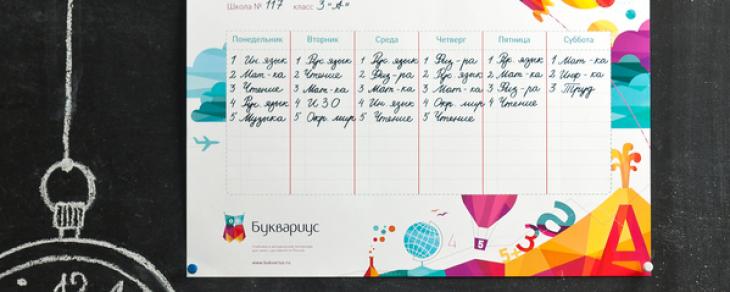 Школа № 117 класс 3 "А"
Понедельник Вторник Среда Четверг Пятница Суббота
1 Ин. язык 1 Рус. язык 1 Рус. язык 1 Физ-ра 1 Рус. язык 1 Мат-ка
2 Мат-ка 2 Чтение 2 Физ-ра 2 Рус. язык 2 Мат-ка 2 Инф-ка
3 Чтение 3 Мат-ка 3 Мат-ка 3 Мат-ка 3 Физ-ра 3 Труд
4 Рус. язык 4 ИЗО 4 Ин. язык 4 Окр. мир 4 Чтение
5 Музыка 5 Окр. мир 5 Чтение 5 Чтение
Буквариус
www.bukvarius.ru
4
5
5+3а
А
12